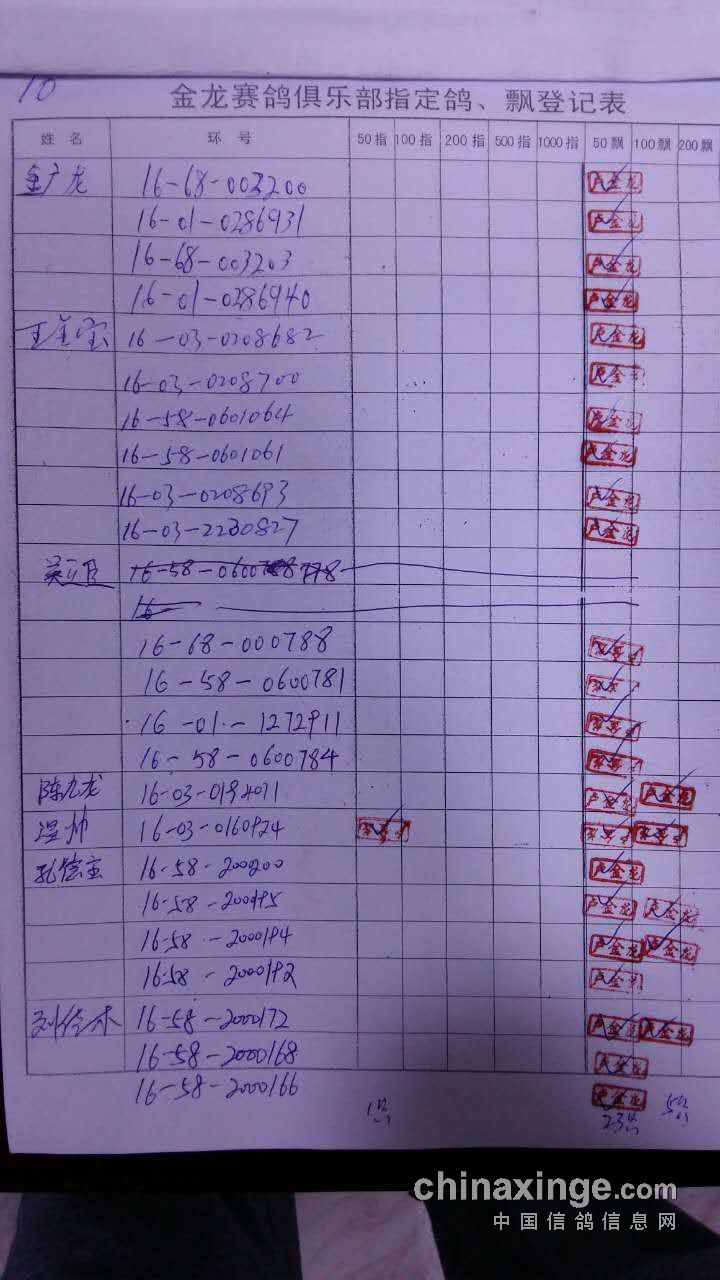 10
金龙赛鸽俱乐部指定鸽、飘登记表
姓 名 环 号 50指 100指 200指 500指 1000指 50飘 100飘 200飘
金广龙 16-68-003200 卢金龙
16-01-0286931 卢金龙
16-68-003203 卢金龙
16-01-0286940 卢金龙
16-03-0208682 卢金龙
16-03-0208700 卢金龙
16-58-0601064 卢金龙
16-58-0601061 卢金龙
16-03-0208693 卢金龙
16-03-2230827 卢金龙
16
16-68-000788
16-58-0600781
16-01-1272911
16-58-0600784
陈九龙 16-03-0194071 卢金龙 卢金龙
温帅 16-03-0160924
孔德玉 16-58-200200 卢金龙
16-58-200195 卢金龙 卢金龙
16-58-2000194 卢金龙 卢金龙
16-58-2000192 卢金龙
刘佳木 16-58-2000172 卢金龙 卢金龙
16-58-2000168 卢金龙
16-58-2000166 卢金龙
chinaxinge.com
中国信鸽信息网